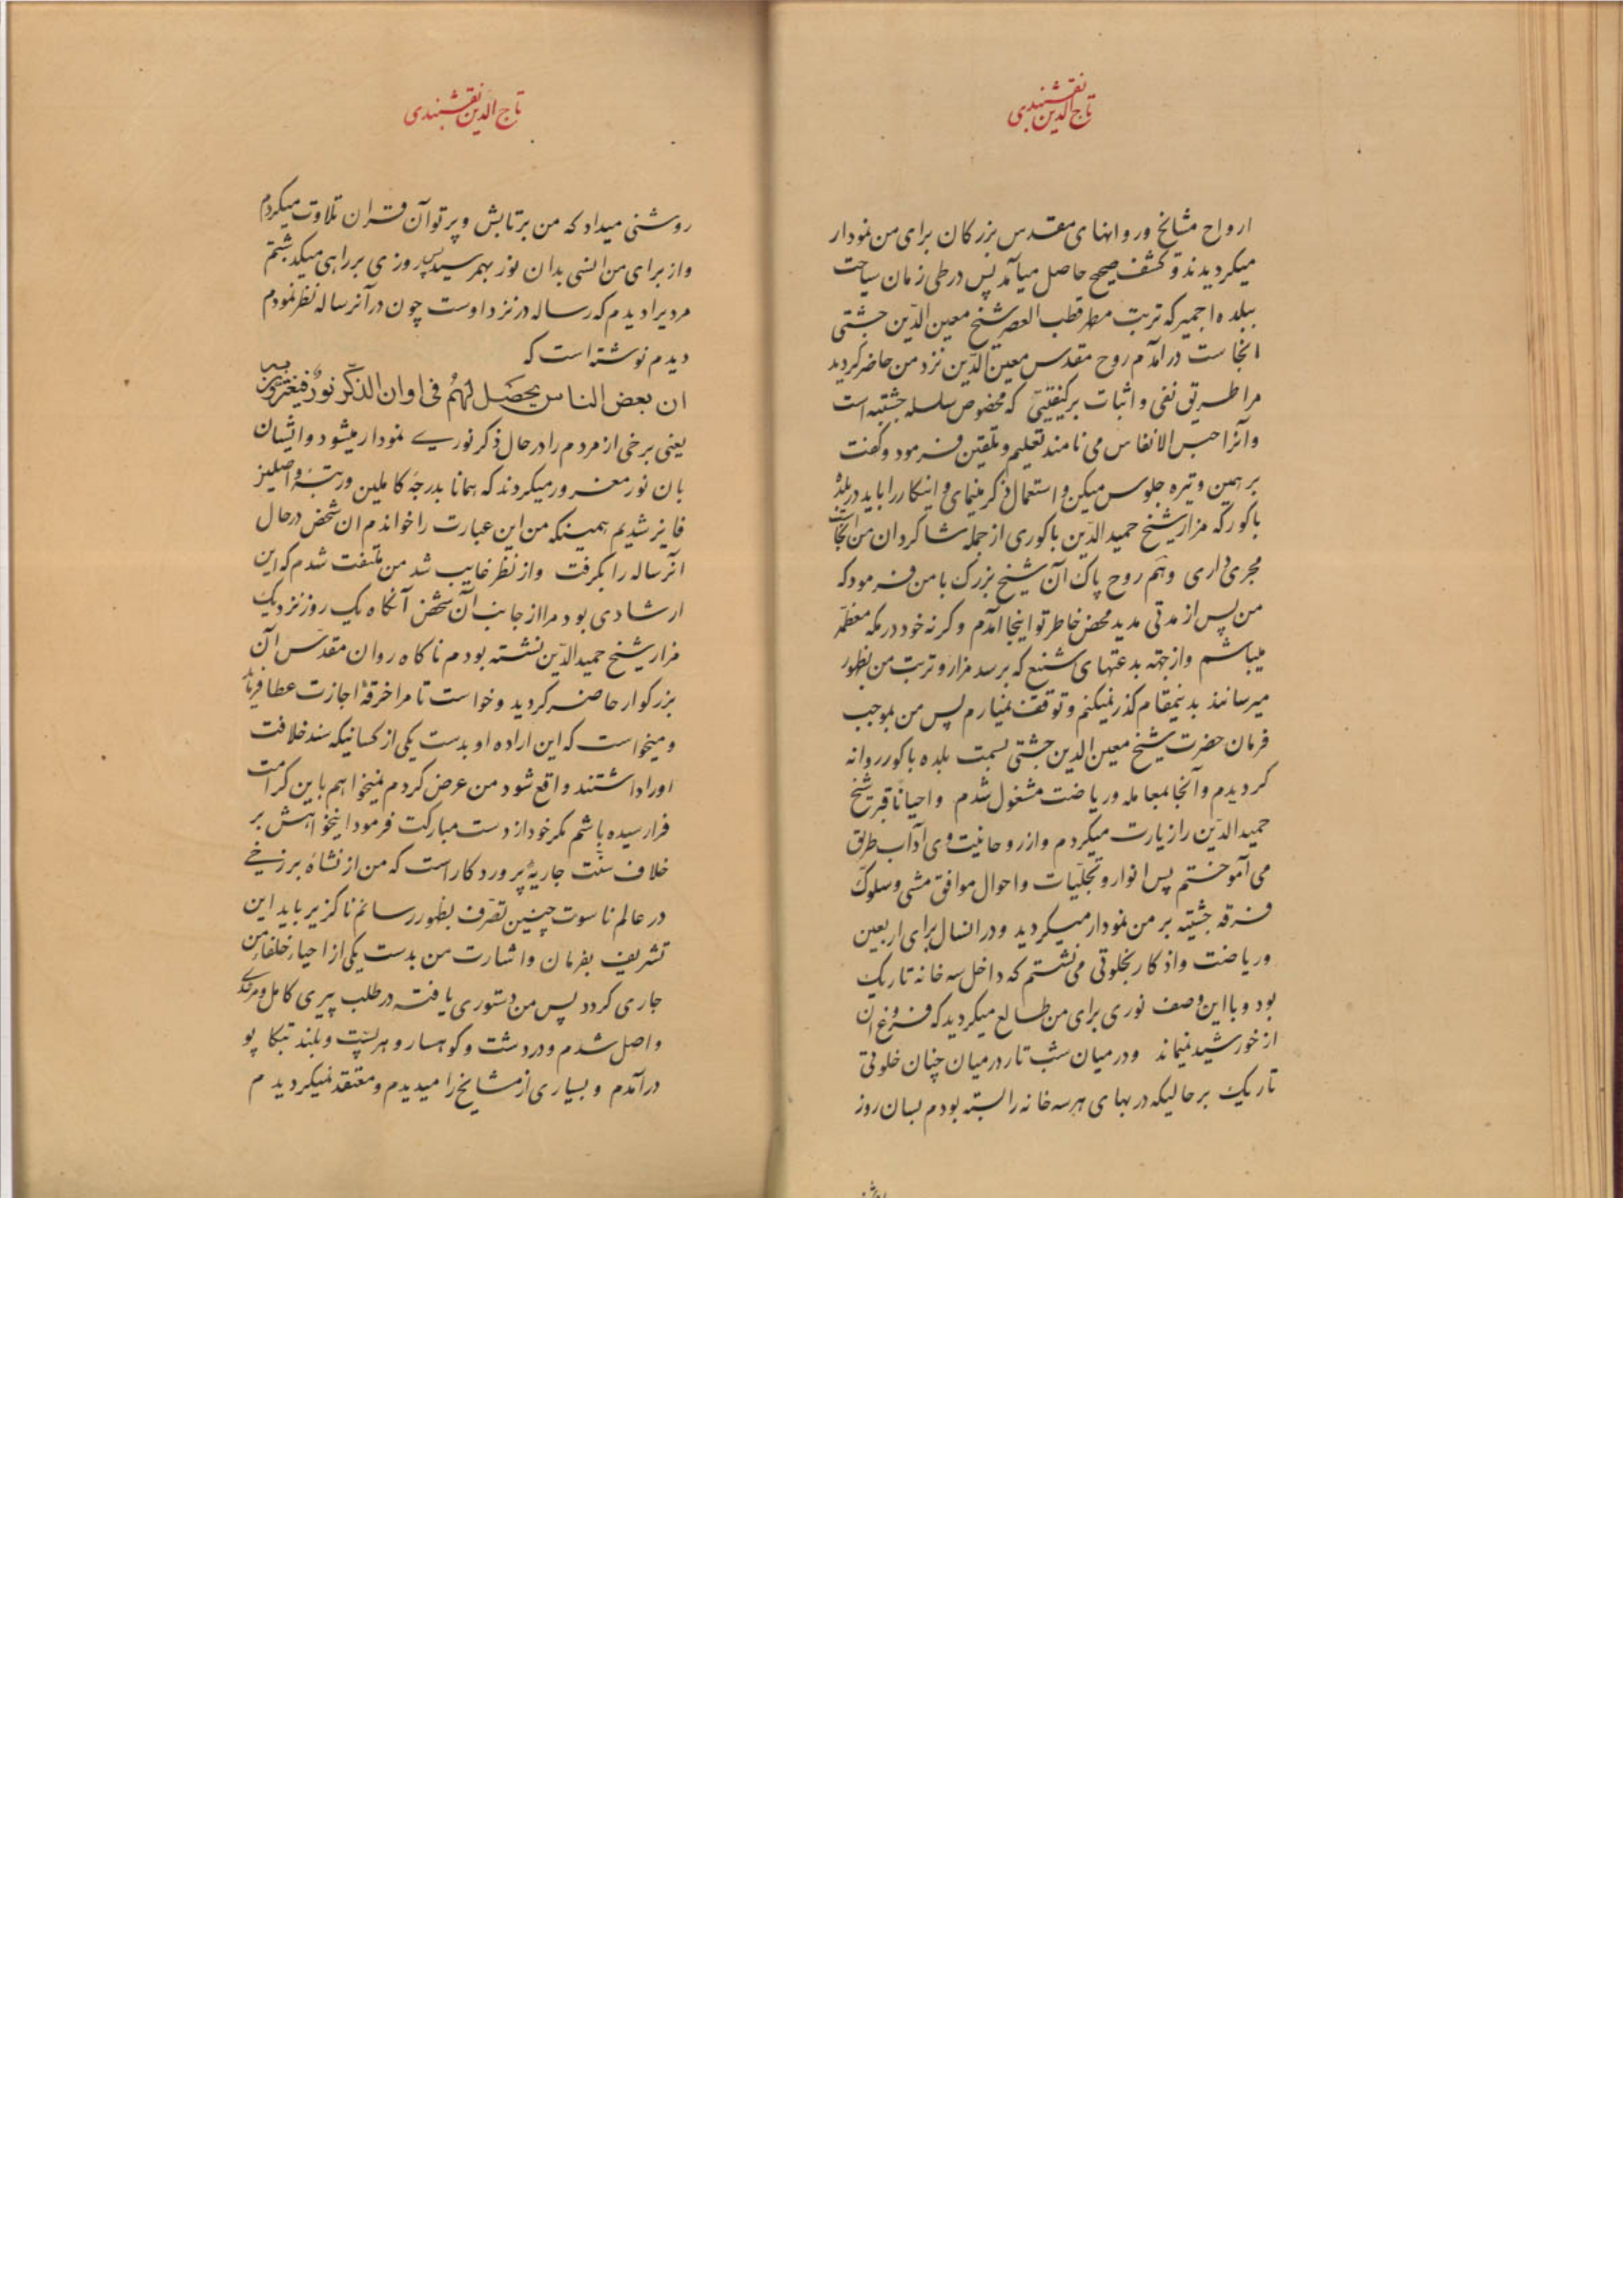 تاج الدین نقشبندی
ارواح مشایخ و روانهای مقدس بزرکان برای من نمودار
میکردیدند و کشف صحیح حاصل میآمد پس در طی زمان سیاحت
ببلده اجمیر که تربت مطهر قطب العصر شیخ معین الدّین چشتی
انجاست درآمدم روح مقدس معین الدّین نزد من حاضر کردید
مرا طریق نفی و اثبات بر کیفیّتی که مخصوص سلسله چشتیه است
و آنرا حبس الانفاس می نامند تعلیم و تلقین فرمود و کفت
بر همین وتیره جلوس میکن و استعمال ذکر مینمای و اینکار را باید در بلدهٔ
باکور که مزار شیخ حمید الدّین باکوری از جمله شاکردان من انجاست
مجری داری و هم روح پاک آن شیخ بزرک با من فرمود که
من پس از مدتی مدید محض خاطر تو اینجا آمدم و کرنه خود در مکه معظمّه
میباشم و از جهته بدعتهای شنیع که بر سد مزار و تربت من بظهور
میرسانند بدینمقام کذر نمیکنم و توقف نمیارم پس من بموجب
فرمان حضرت شیخ معین الدین چشتی بسمت بلده باکور روانه
کردیدم و آنجا بمعامله و ریاضت مشغول شدم و احیاناً قبر شیخ
حمید الدّین را زیارت میکردم و از روحانیت وی آداب طریق
می آموختم پس انوار و تجلّیات و احوال موافق مشی و سلوک
فرقه چشتیه بر من نمودار میکردید و در انسال برای اربعین
و ریاضت و اذکار بخلوتی می نشستم که داخل سه خانه تاریک
بود و با این وصف نوری برای من طالع میکردید که فروغ ان
از خورشید نمیماند و در میان شب تار در میان چنان خلوتی
تاریک بر حالیکه دربهای هر سه خانه را بسته بودم بسان روز
تاج الدّین نقشبندی
روشنی میداد که من بر تابش و پرتو آن قران تلاوت میکردم
و از برای من انسی بدان نور بهم رسید پس روزی بر راهی میکذشتم
مردیرا دیدم که رساله در نزد اوست چون در آنرساله نظر نمودم
دیدم نوشته است که
ان بعض الناس یحصل لهُم فی اوان الذّکر نورٌ فیغترون به
یعنی برخی از مردم را در حال ذکر نوری نمودار میشود و ایشان
بان نور مغرور میکردند که همانا بدرجهٔ کاملین و رتبهٔ واصلین
فایز شدیم همینکه من این عبارت را خواندم ان شخص در حال
آنرساله را بکرفت و از نظر غایب شد من ملتفت شدم که این
ارشادی بود مرا از جانب آن شخص آنکاه یک روز نزدیک
مزار شیخ حمید الدّین نشسته بودم ناکاه روان مقدّس آن
بزرکوار حاضر کردید و خواست تا مرا خرقهٔ اجازت عطا فرماید
و میخواست که این اراده او بدست یکی از کسانیکه سند خلافت
اورا داشتند واقع شود من عرض کردم نمیخواهم باین کرامت
فرارسیده باشم مکر خود از دست مبارکت فرمود اینخواهش بر
خلاف سنّت جاریهٔ پروردکار است که من از نشاهٔ برزخی
در عالم ناسوت چنین تصّرف بظهور رسانم ناکزیر باید این
تشریف بفرمان و اشارت من بدست یکی از احیاء خلفاء من
جاری کردد پس من دستوری یافته در طلب پیری کامل و مرشدی
واصل شدم و در دشت و کوهسار و هر پست و بلند بتکاپو
درآمدم و بسیاری از مشایخ را میدیدم و معتقد نمیکردیدم